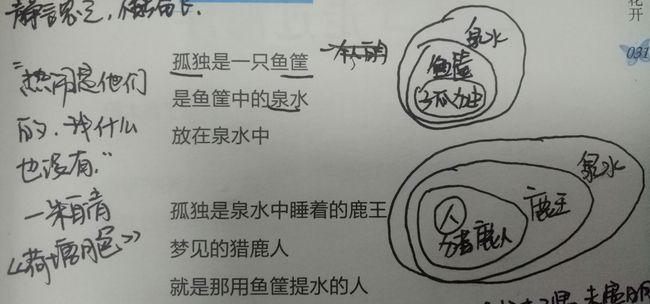 花开
031
孤独是一只鱼筐
是鱼筐中的泉水
放在泉水中
孤独是泉水中睡着的鹿王
梦见的猎鹿人
就是那用鱼筐提水的人
"热闹是他们
的,我什么
也没有."
—朱自清
《荷塘月色》
泉水
鱼筐
孤独
泉水
鹿王
猎鹿人
人